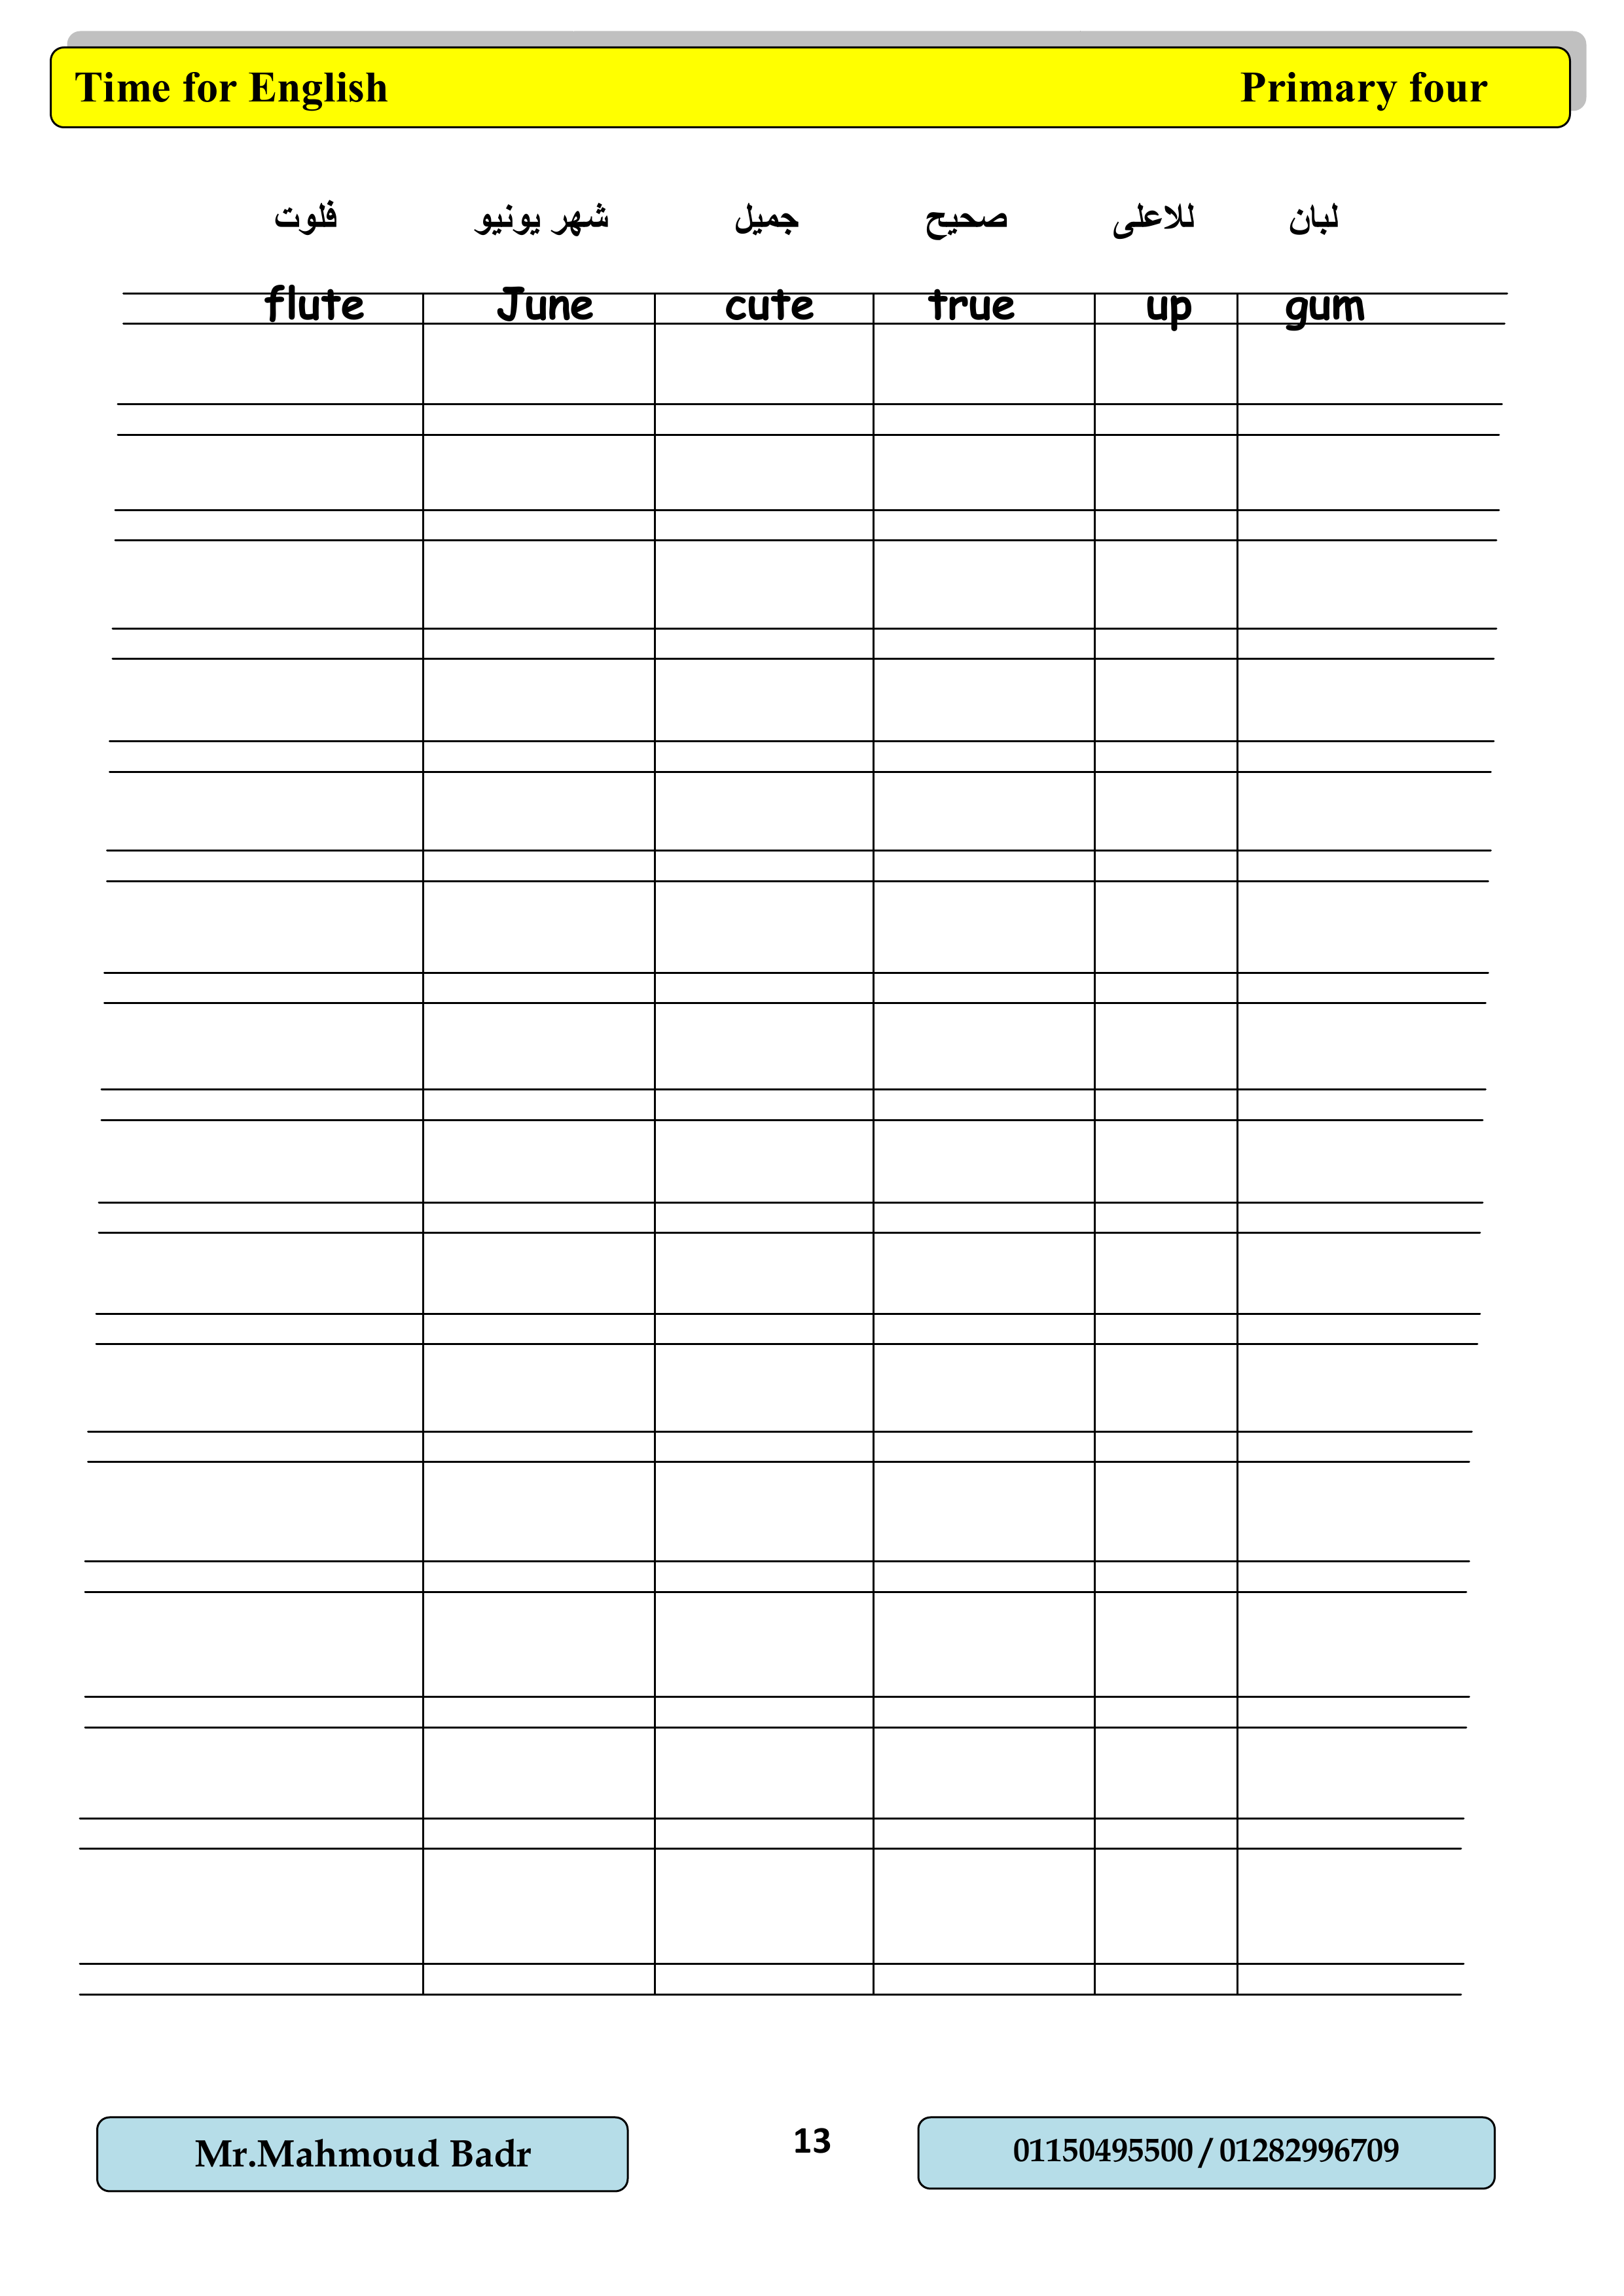 Time for English Primary four
فلوت شهر يونيو جميل صحيح للاعلى لبان
flute June cute true up gum
Mr.Mahmoud Badr 13 01150495500 / 01282996709